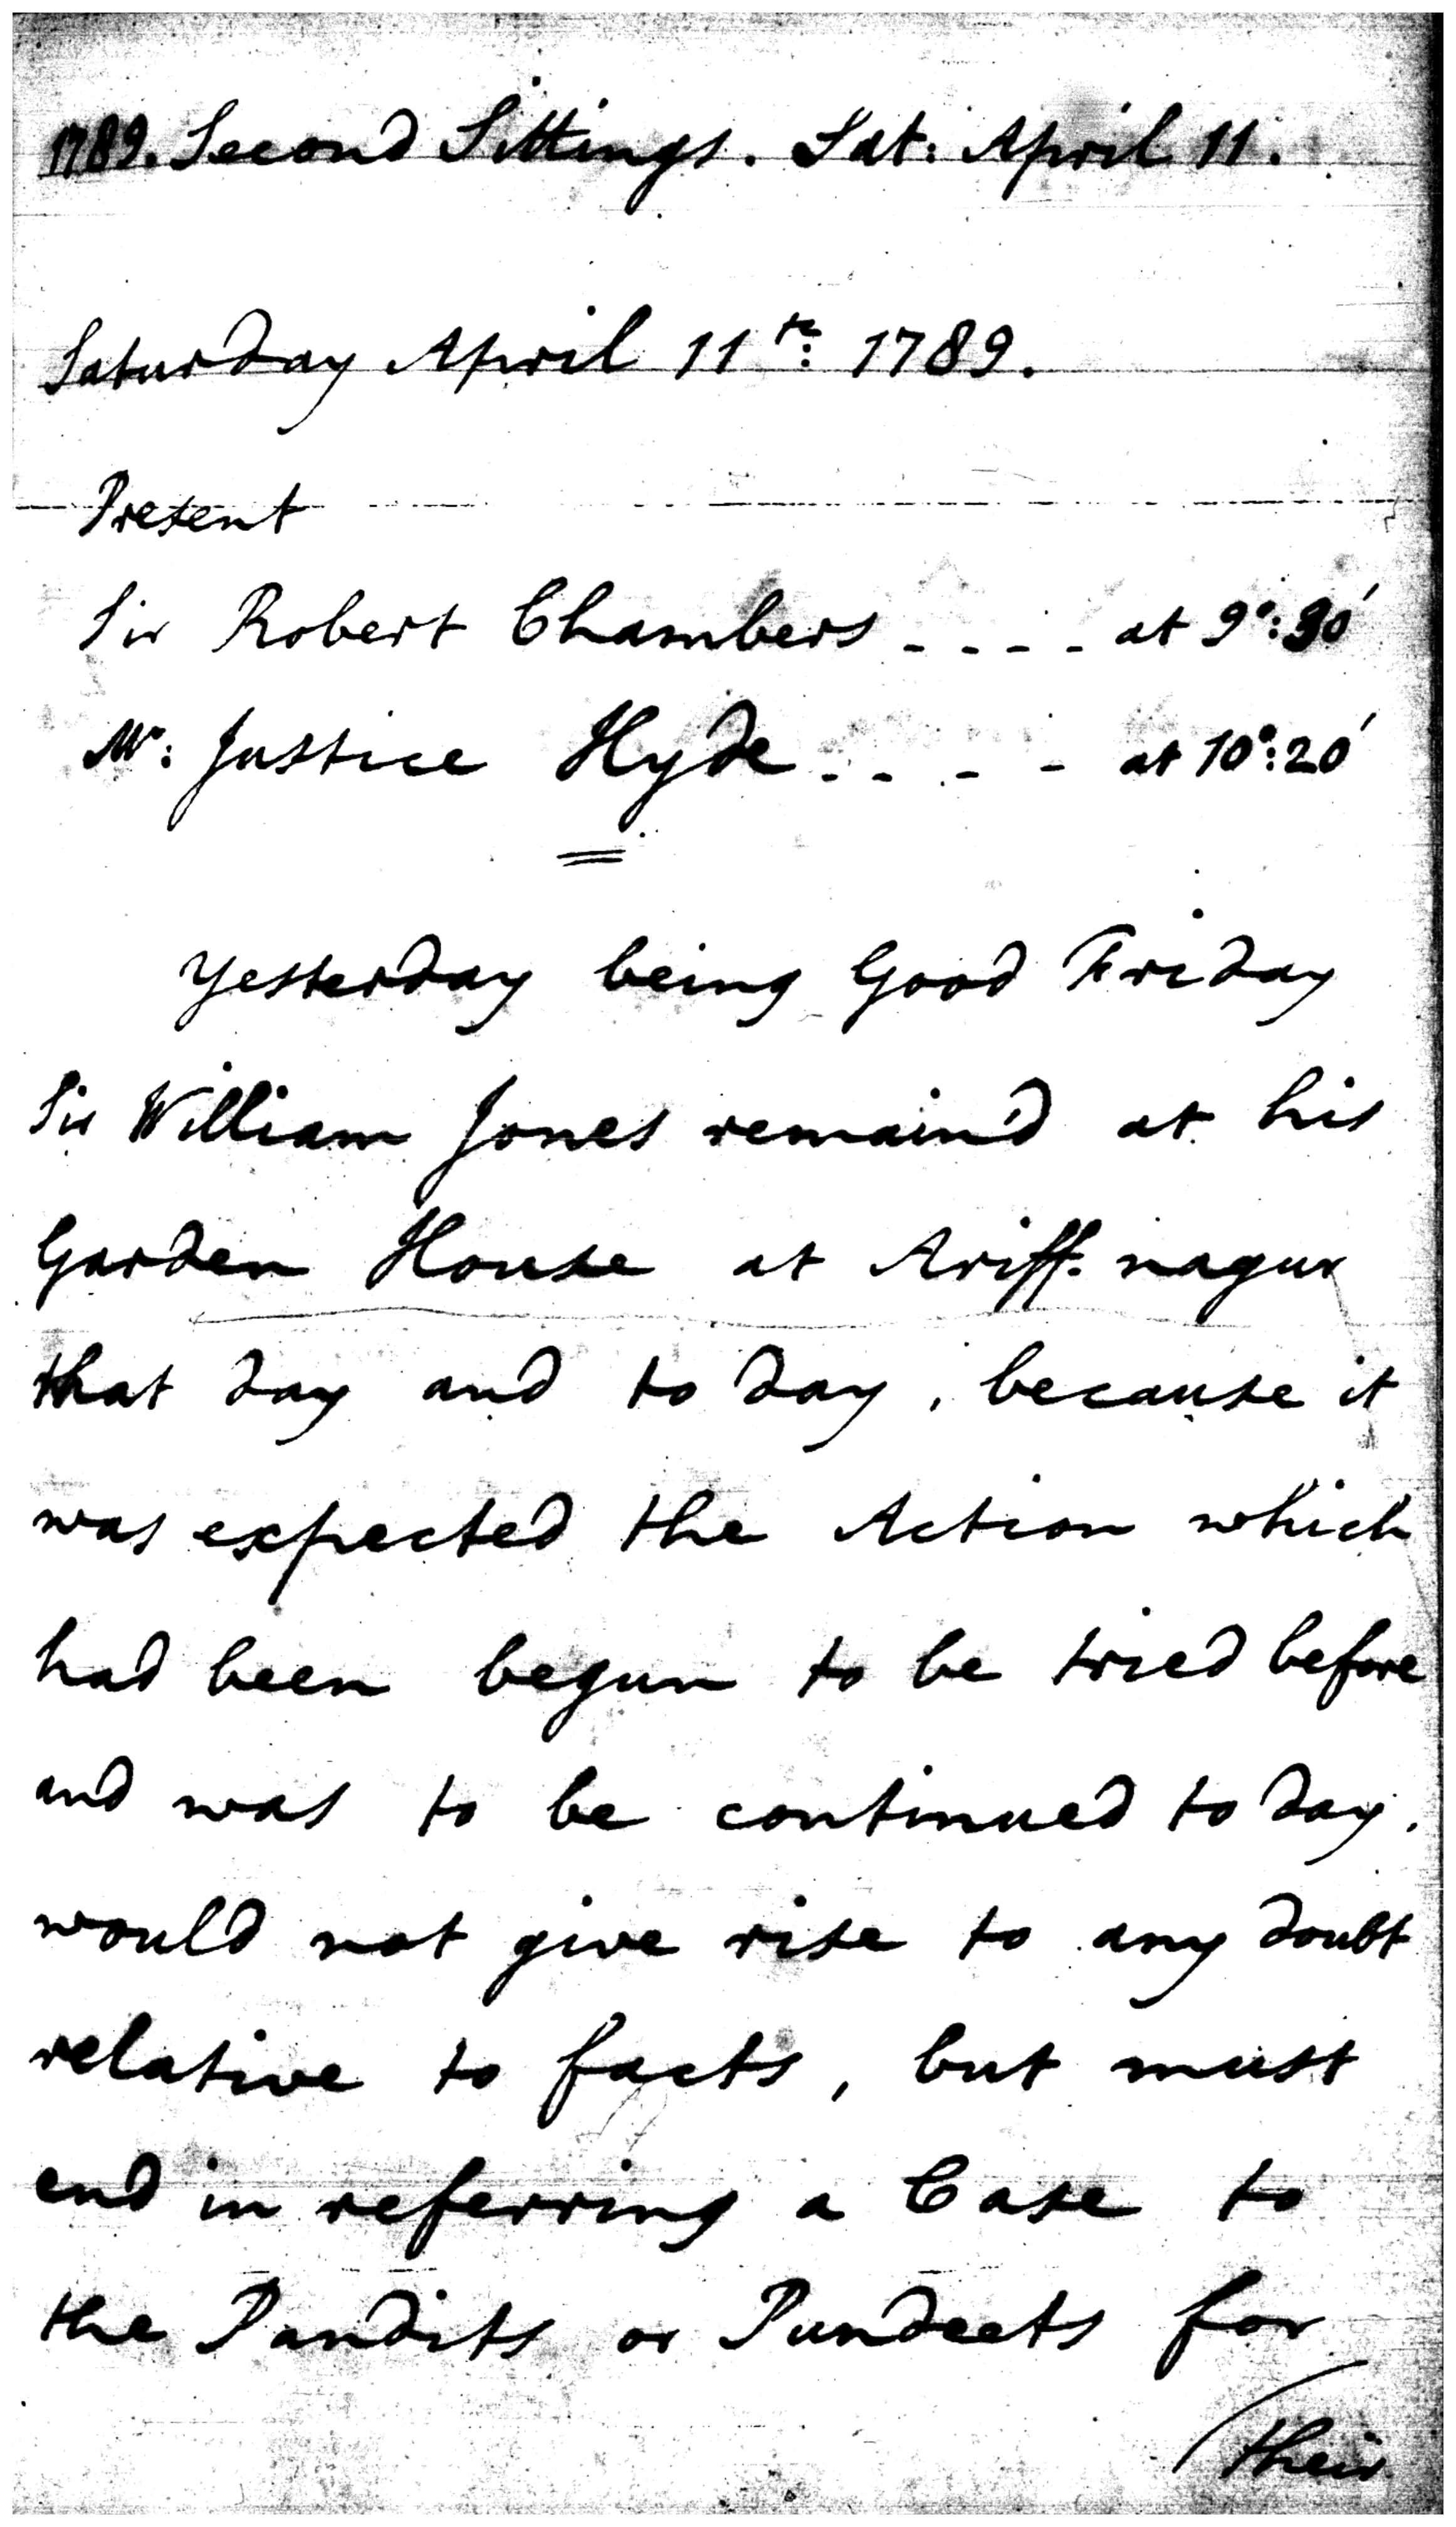 1789. Second Sittings. Sat: April 11.
Saturday April 11th: 1789.
Present
Sir Robert Chambers - - - - at 9°: 30'
Mr: Justice Hyde - - - - at 10°: 20'
Yesterday being Good Friday
Sir William Jones remain'd at his
Garden House at Ariff-nagur
that day and to day, because it
was expected the Action which
had been begun to be tried before
and was to be continued to day,
would not give rise to any doubt
relative to facts, but must
end in referring a Case to
the Pandits or Pundeets for
their